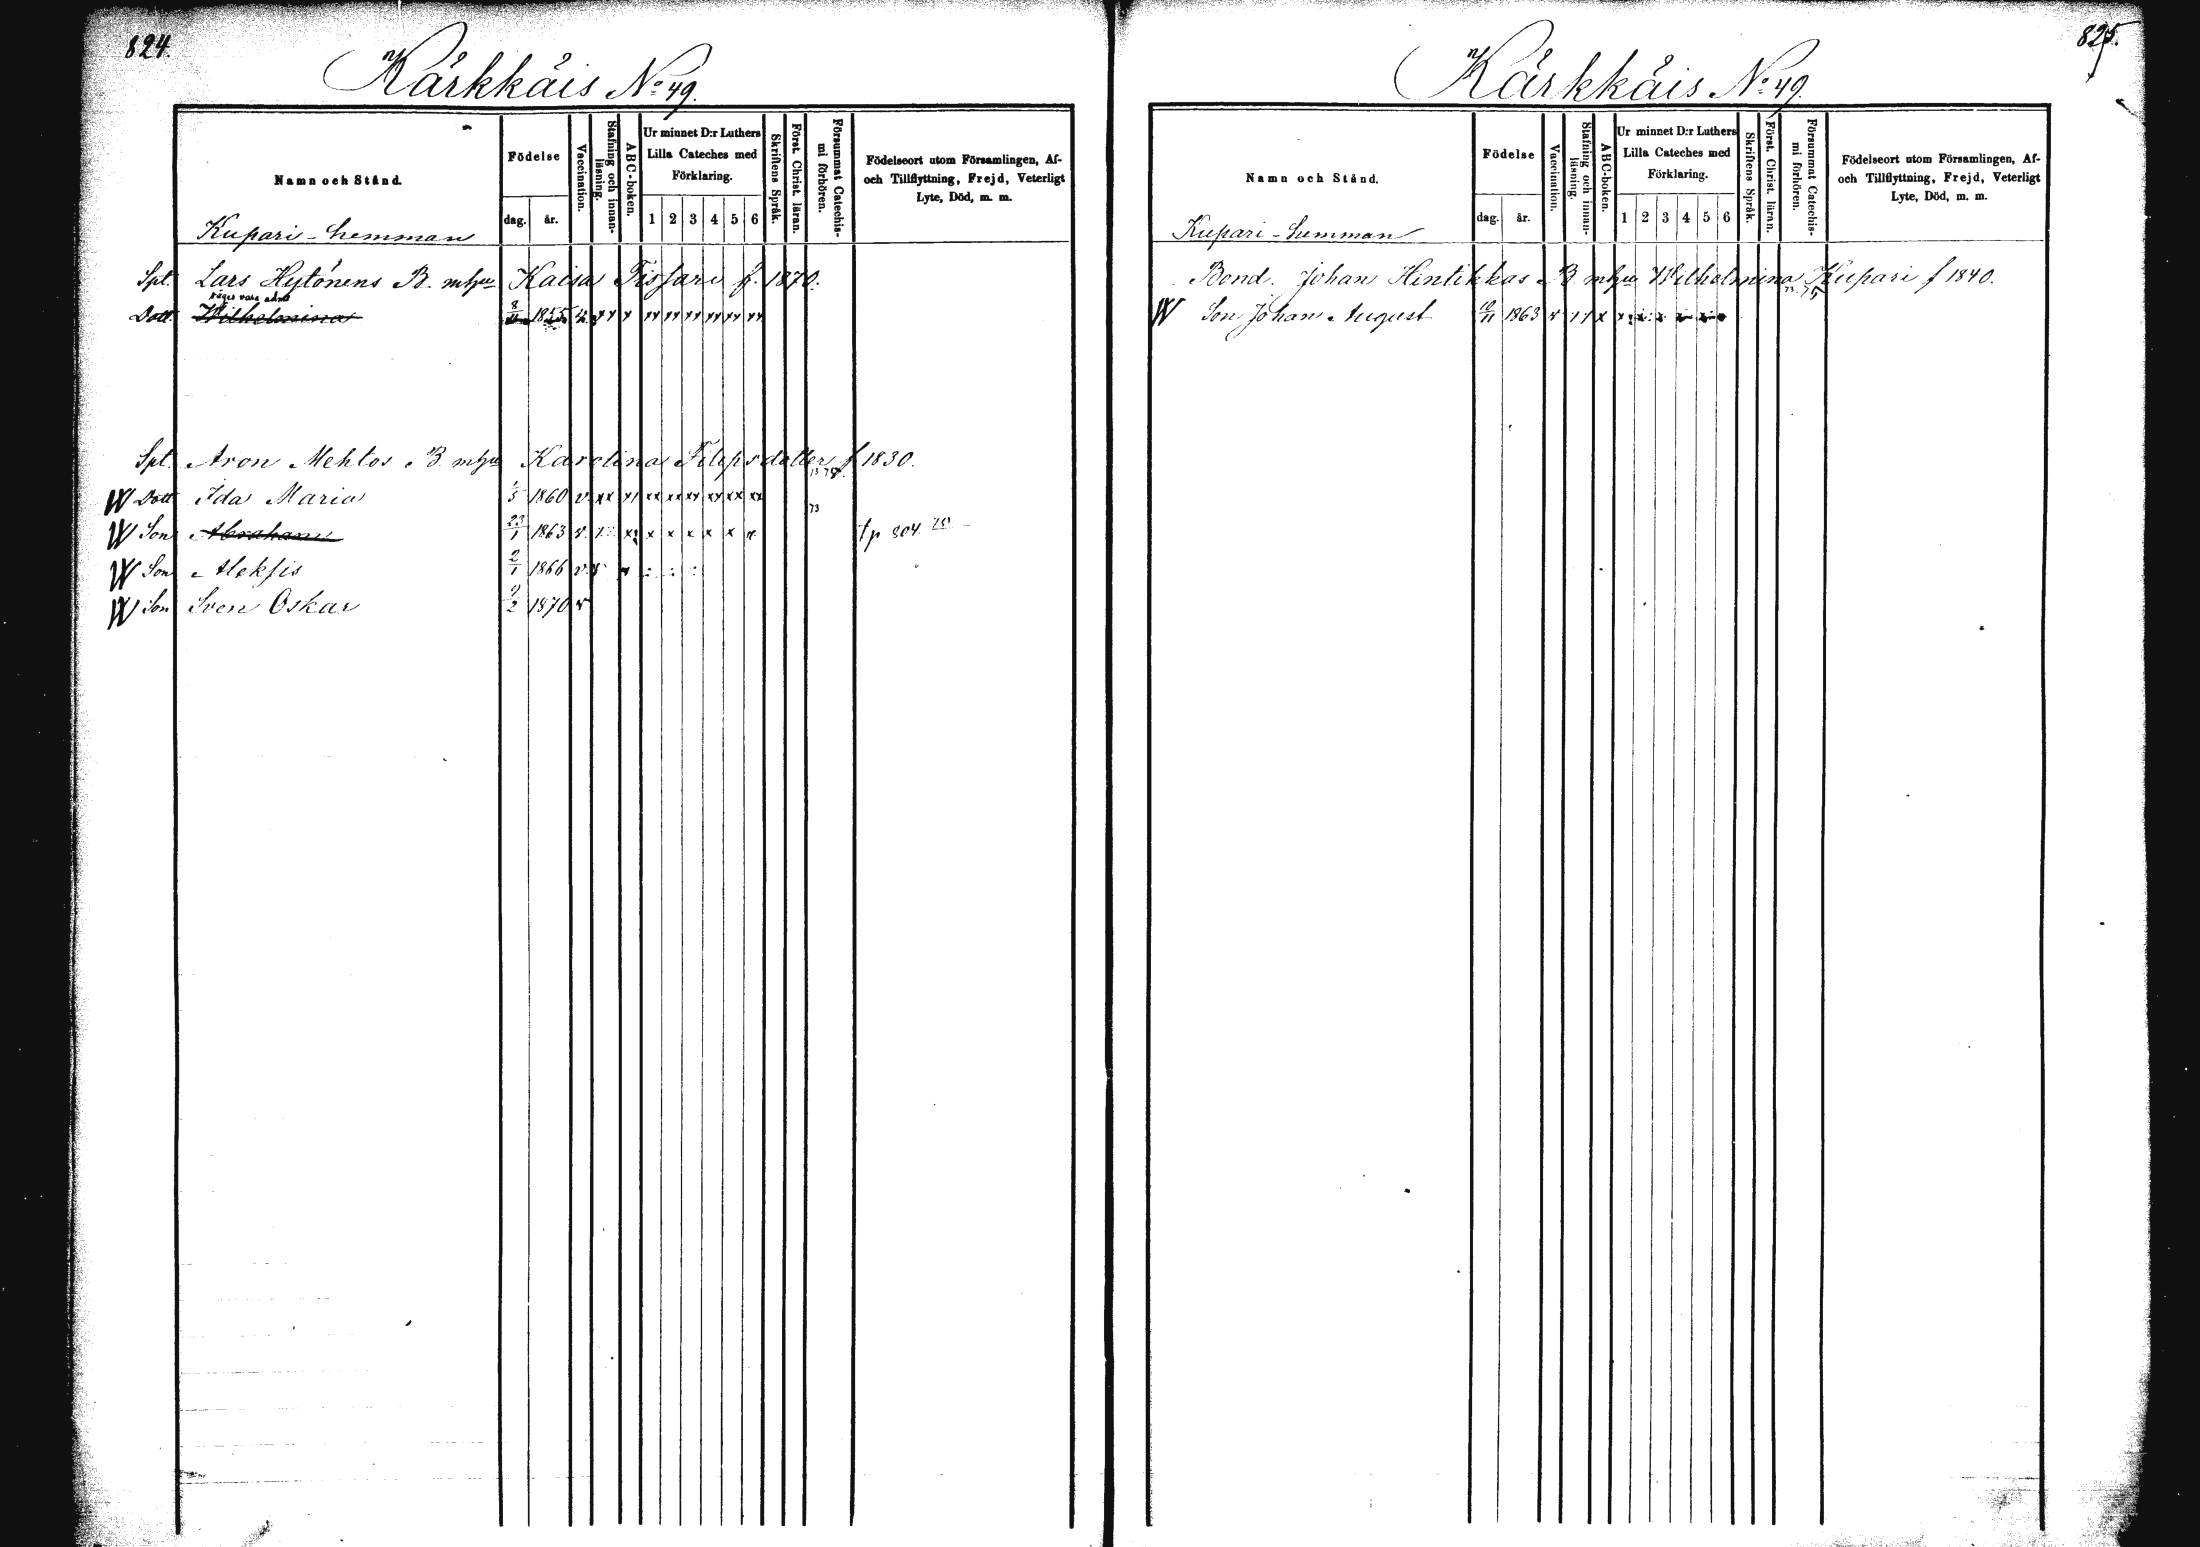 824.
Kärkkäis No 49.
Namn och Stånd.
Födelse
dag.
år.
Vaccination.
Stafning och innan-
läsning.
ABC-boken.
Ur minnet D:r Luthers
Lilla Cateches med
Förklaring.
1 2 3 4 5 6
Skriftens Språk.
Först. Christ. läran.
Försummat Catechis-
mi förhören.
Födelseort utom Församlingen, Af-
och Tillflyttning, Frejd, Veterligt
Lyte, Död, m. m.
Kupari-hemman
Spt. Lars Hytönens B. mhju Kaisa Tissari f. 1870.
säges vara adm
Dott. Wilhelmina 1855
Spt. Aron Mehtos B mhju Karolina Filipsdotter f 1830.
73 75
W Dott Ida Maria 1/5 1860 v xx xx xx xx xx xx xx
73
W Son Abraham 23/1 1863 v x x x x x x tp 804 75
W Son Aleksis 2/1 1866 v
W Son Sven Oskar 9/2 1870 v
825.
Kärkkäis No 49.
Namn och Stånd.
Födelse
dag.
år.
Vaccination.
Stafning och innan-
läsning.
ABC-boken.
Ur minnet D:r Luthers
Lilla Cateches med
Förklaring.
1 2 3 4 5 6
Skriftens Språk.
Först. Christ. läran.
Försummat Catechis-
mi förhören.
Födelseort utom Församlingen, Af-
och Tillflyttning, Frejd, Veterligt
Lyte, Död, m. m.
Kupari-hemman
Bond. Johan Hintikkas B mhju Wilhelmina Kupari f 1840.
73. 75
W Son Johan August 10/11 1863 v xx x